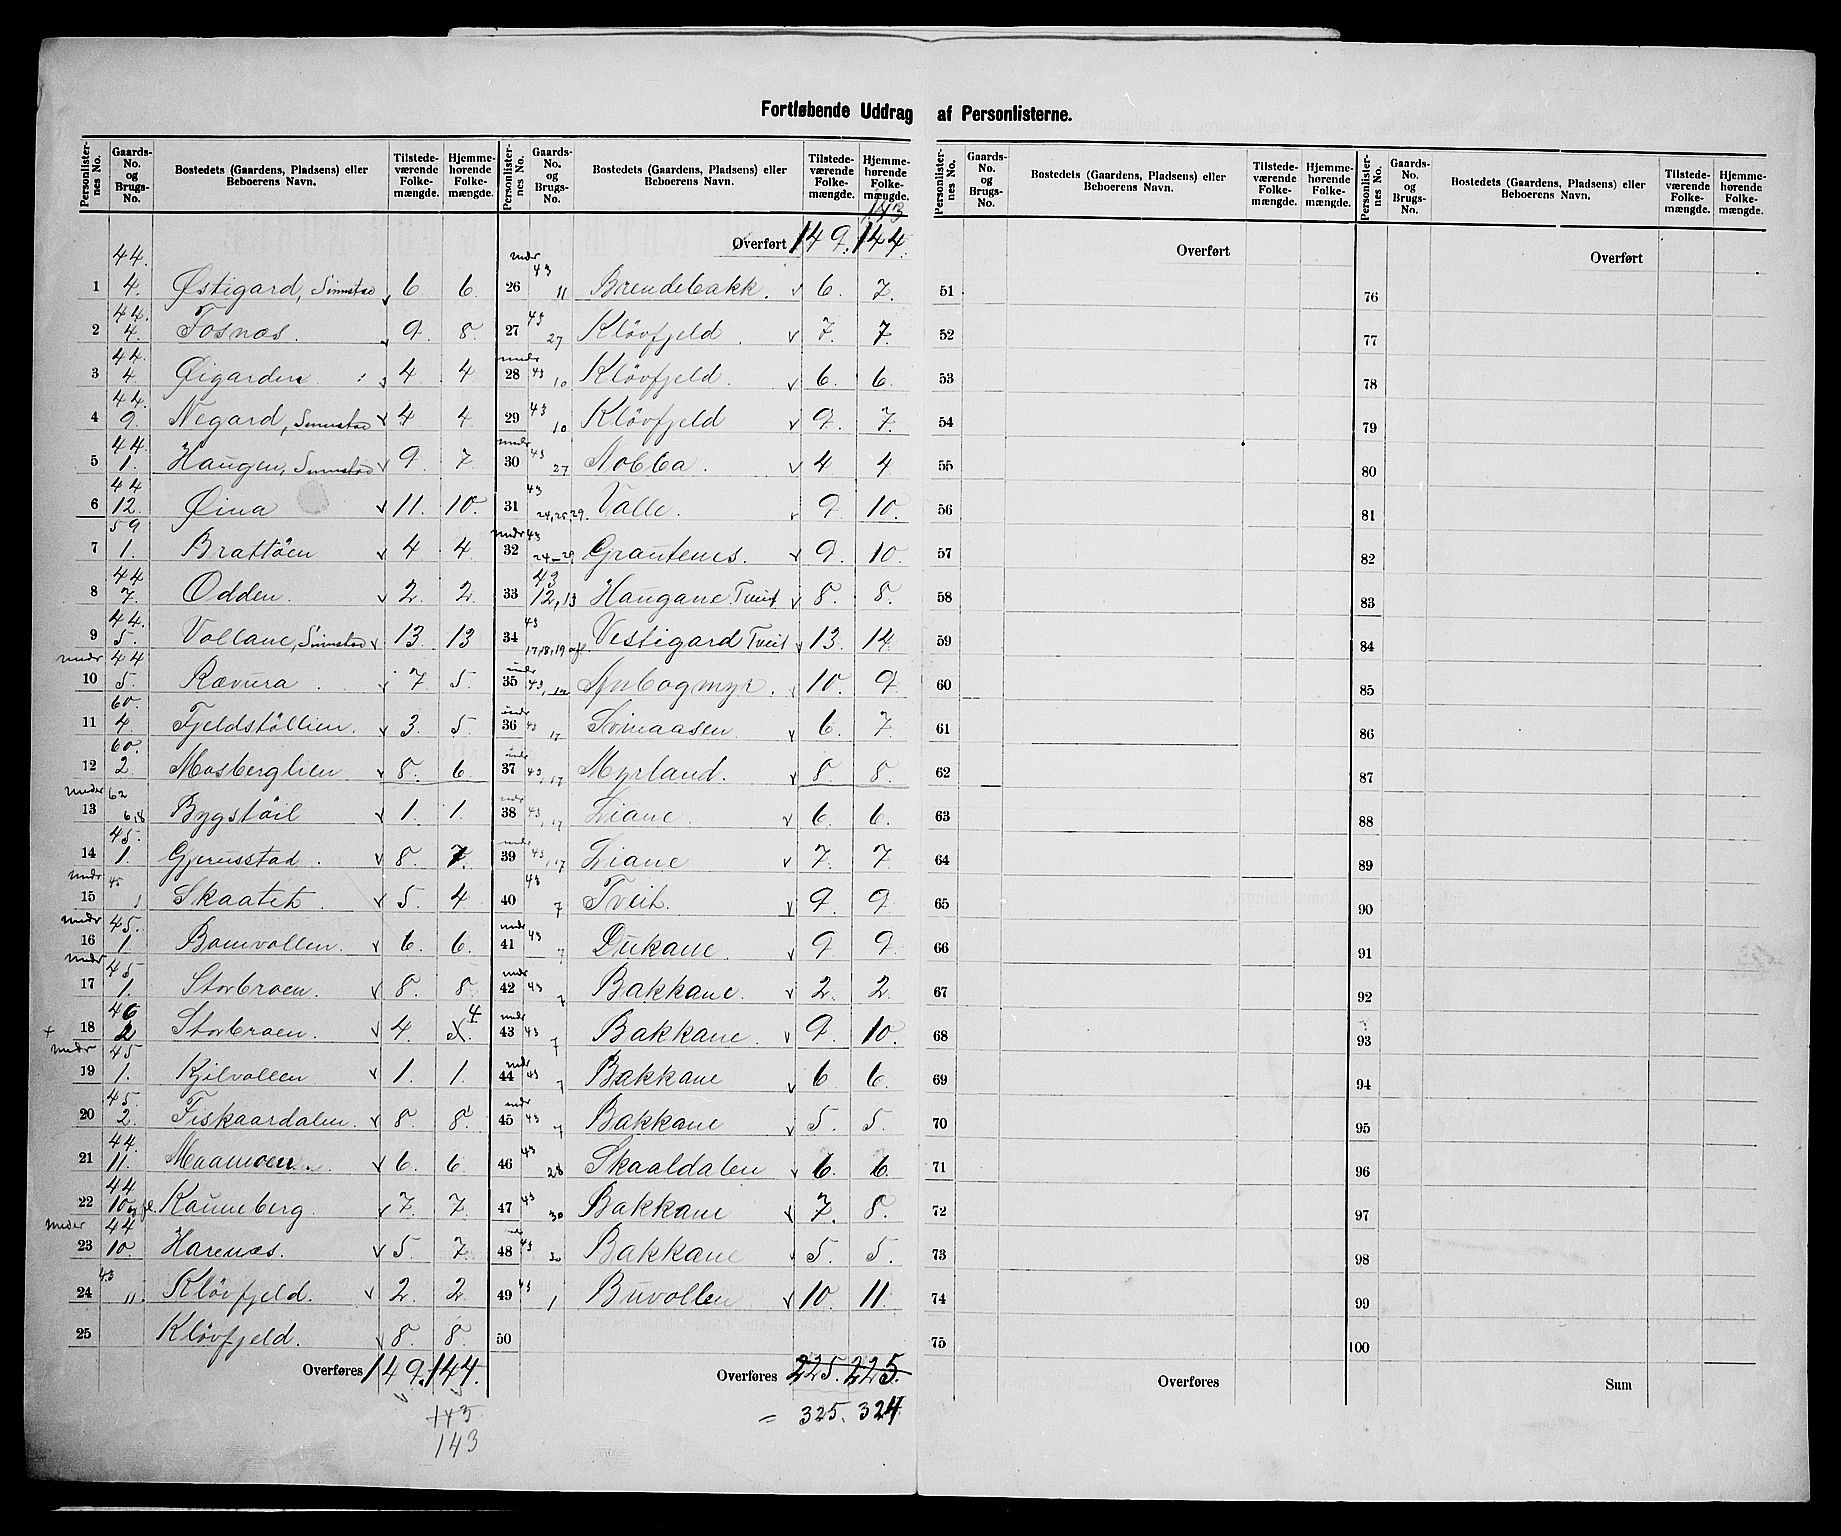 Fortløbende Uddrag af Personlisterne.
Personlisternes No. Gaards-No. og Brugs-No. Bostedets (Gaardens, Pladsens) eller Beboerens Navn. Tilstedeværende Folkemængde. Hjemmehørende Folkemængde.
1 44. 4. Østigard, Simmstad 6 6.
2 44. 4. Fosnæs. 9. 8.
3 44. 4. Øigarden 4 4
4 44. 9. Negard, Simmstad 4 4.
5 44. 1. Haugen, Simmstad 9. 7.
6 44 12. Øina 11. 10.
7 59 1. Brattøen 4 4
8 44 7. Odden. 2. 2.
9 44. 5. Vollane, Simmstad 13. 13
10 under 44 5. Rævura 7 5.
11 60. 4 Fjeldstøllien. 3. 5.
12 60. 2. Mosberglien 8. 6
13 under 62 6,8 Bygstøil 1. 1.
14 45. 1. Gjerusstad. 8. 7.
15 under 45 1 Skaatet. 5. 4
16 under 45. 1. Bomvollen. 6. 6.
17 under 45 1. Storbroen. 8. 8.
+ 18 46 2 Storbroen 4. 4
19 under 45 1. Kjilvollen 1. 1.
20 45. 2. Fiskaardalen. 8. 8.
21 44. 11. Maamoen. 6. 6.
22 44 10 Kaunneberg 7. 7.
23 under 44 10. Harenæs. 5. 7
24 43 11. Kløvfjeld. 2. 2
25 Kløvfjeld. 8. 8.
Overføres 149. 144.
145
143
Personlisternes No. Gaards-No. og Brugs-No. Bostedets (Gaardens, Pladsens) eller Beboerens Navn. Tilstedeværende Folkemængde. Hjemmehørende Folkemængde.
143
Overført 149. 144.
26 under 43 11 Brendebakk. 6. 7.
27 43 27 Kløvfjeld. 7. 7
28 under 43 10 Kløvfjeld. 6. 6.
29 43 10. Kløvfjeld 9. 7.
30 under 43 27 Nobba. 4 4
31 43 24, 25, 29. Valle. 9. 10.
32 under 43 24-29 Grautenes. 9. 10.
33 43 12, 13 Haugane Tveit 8. 8.
34 43 17, 18, 19 Vestigard Tveit 13. 14
35 under 43, 17 10. 9.
36 under 43 17 Svinaasen 6. 7.
37 under 43, 17 Myrland. 8. 8.
38 under 43, 17 Liane. 6. 6.
39 under 43, 17 Liane 7. 7
40 43 7 Tveit. 9. 9.
41 under 43 7 Dukane. 9 9.
42 under 43 7 Bakkane. 2. 2.
43 under 43 7 Bakkane. 9. 10.
44 under 43 7 Bakkane 6 6.
45 under 43 7 Bakkane 5. 5.
46 43 28 Skaaldalen 6. 6.
47 43 30 Bakkane 7. 8.
48 under 43 30 Bakkane 5. 5.
49 43 1 Buvollen 10. 11.
50
Overføres 225. 225.
= 325. 324
Personlisternes No. Gaards-No. og Brugs-No. Bostedets (Gaardens, Pladsens) eller Beboerens Navn. Tilstedeværende Folkemængde. Hjemmehørende Folkemængde.
Overført
51
52
53
54
55
56
57
58
59
60
61
62
63
64
65
66
67
68
69
70
71
72
73
74
75
Overføres
Personlisternes No. Gaards-No. og Brugs-No. Bostedets (Gaardens, Pladsens) eller Beboerens Navn. Tilstedeværende Folkemængde. Hjemmehørende Folkemængde.
Overført
76
77
78
79
80
81
82
83
84
85
86
87
88
89
90
91
92
93
94
95
96
97
98
99
100
Sum